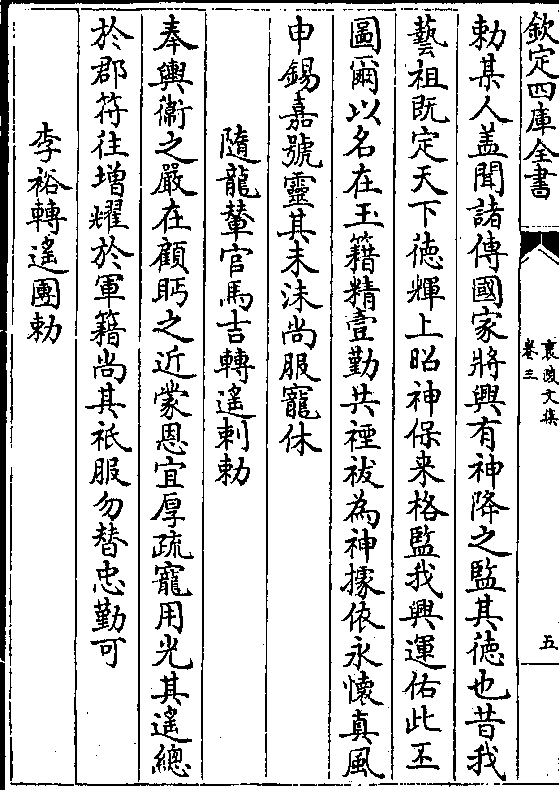 欽定四庫全書
襄陵文集
卷三
五
勅某人盖聞諸傳國家將興有神降之監其徳也昔我
藝祖既定天下徳輝上昭神保来格監我興運佑此丕
圖爾以名在玉籍精壹勤共禋祓為神據依永懷真風
申錫嘉號靈其未沬尚服寵休
隨龍輦官馬吉轉遙刺勅
奉輿衛之嚴在顧眄之近蒙恩宜厚疏寵用光其遙總
於郡符往增耀於軍籍尚其祇服勿替忠勤可
李裕轉遙團勅